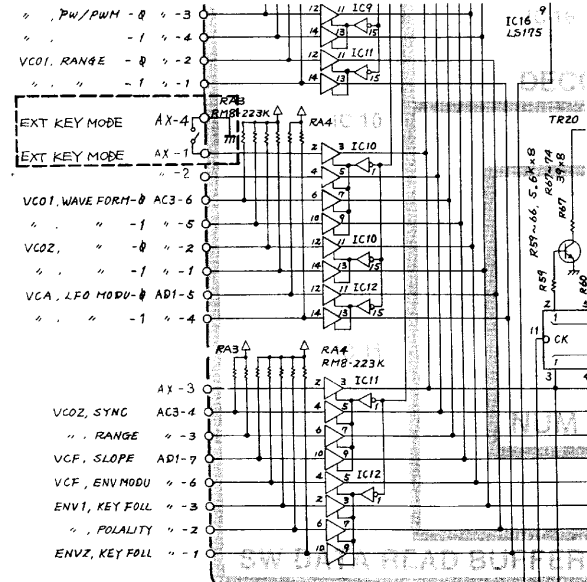 〃 , PW/PWM - 0 〃 -3
〃 , 〃 -1 〃 -4
VCO1, RANGE - 0 〃 -2
〃 , 〃 -1 〃 -1
EXT KEY MODE AX-4
EXT KEY MODE AX-1
〃 -2
VCO1, WAVE FORM-0 AC3-6
〃 , 〃 -1 〃 -5
VCO2, 〃 -0 〃 -2
〃 , 〃 -1 〃 -1
VCA, LFO MODU-0 AD1-5
〃 , 〃 -1 〃 -4
AX-3
VCO2, SYNC AC3-4
〃 , RANGE 〃 -3
VCF, SLOPE AD1-7
VCF, ENV MODU 〃 -6
ENV1, KEY FOLL 〃 -3
〃 , POLALITY 〃 -2
ENV2, KEY FOLL 〃 -1
RA3
RM8-223K
RA4
RA3
RA4
RM8-223K
12 11 IC9
14 13 15
12 11 IC11
14 13 15
2 3 IC10
4 5 1
6 7
10 9
12 11 IC10
14 13 15
12 11 IC12
14 13 15
2 3 IC11
4 5 1
6 7
10 9
4 5 IC12
2 3 1
6 7
10 9
9
IC16
LS175
TR20
R59~66, 5.6K×8
R67~74
39×8
R67
R59
R60
2 5
11 CK
3 4
IC 10
DECO
NUM
SW DATA READ BUFFER